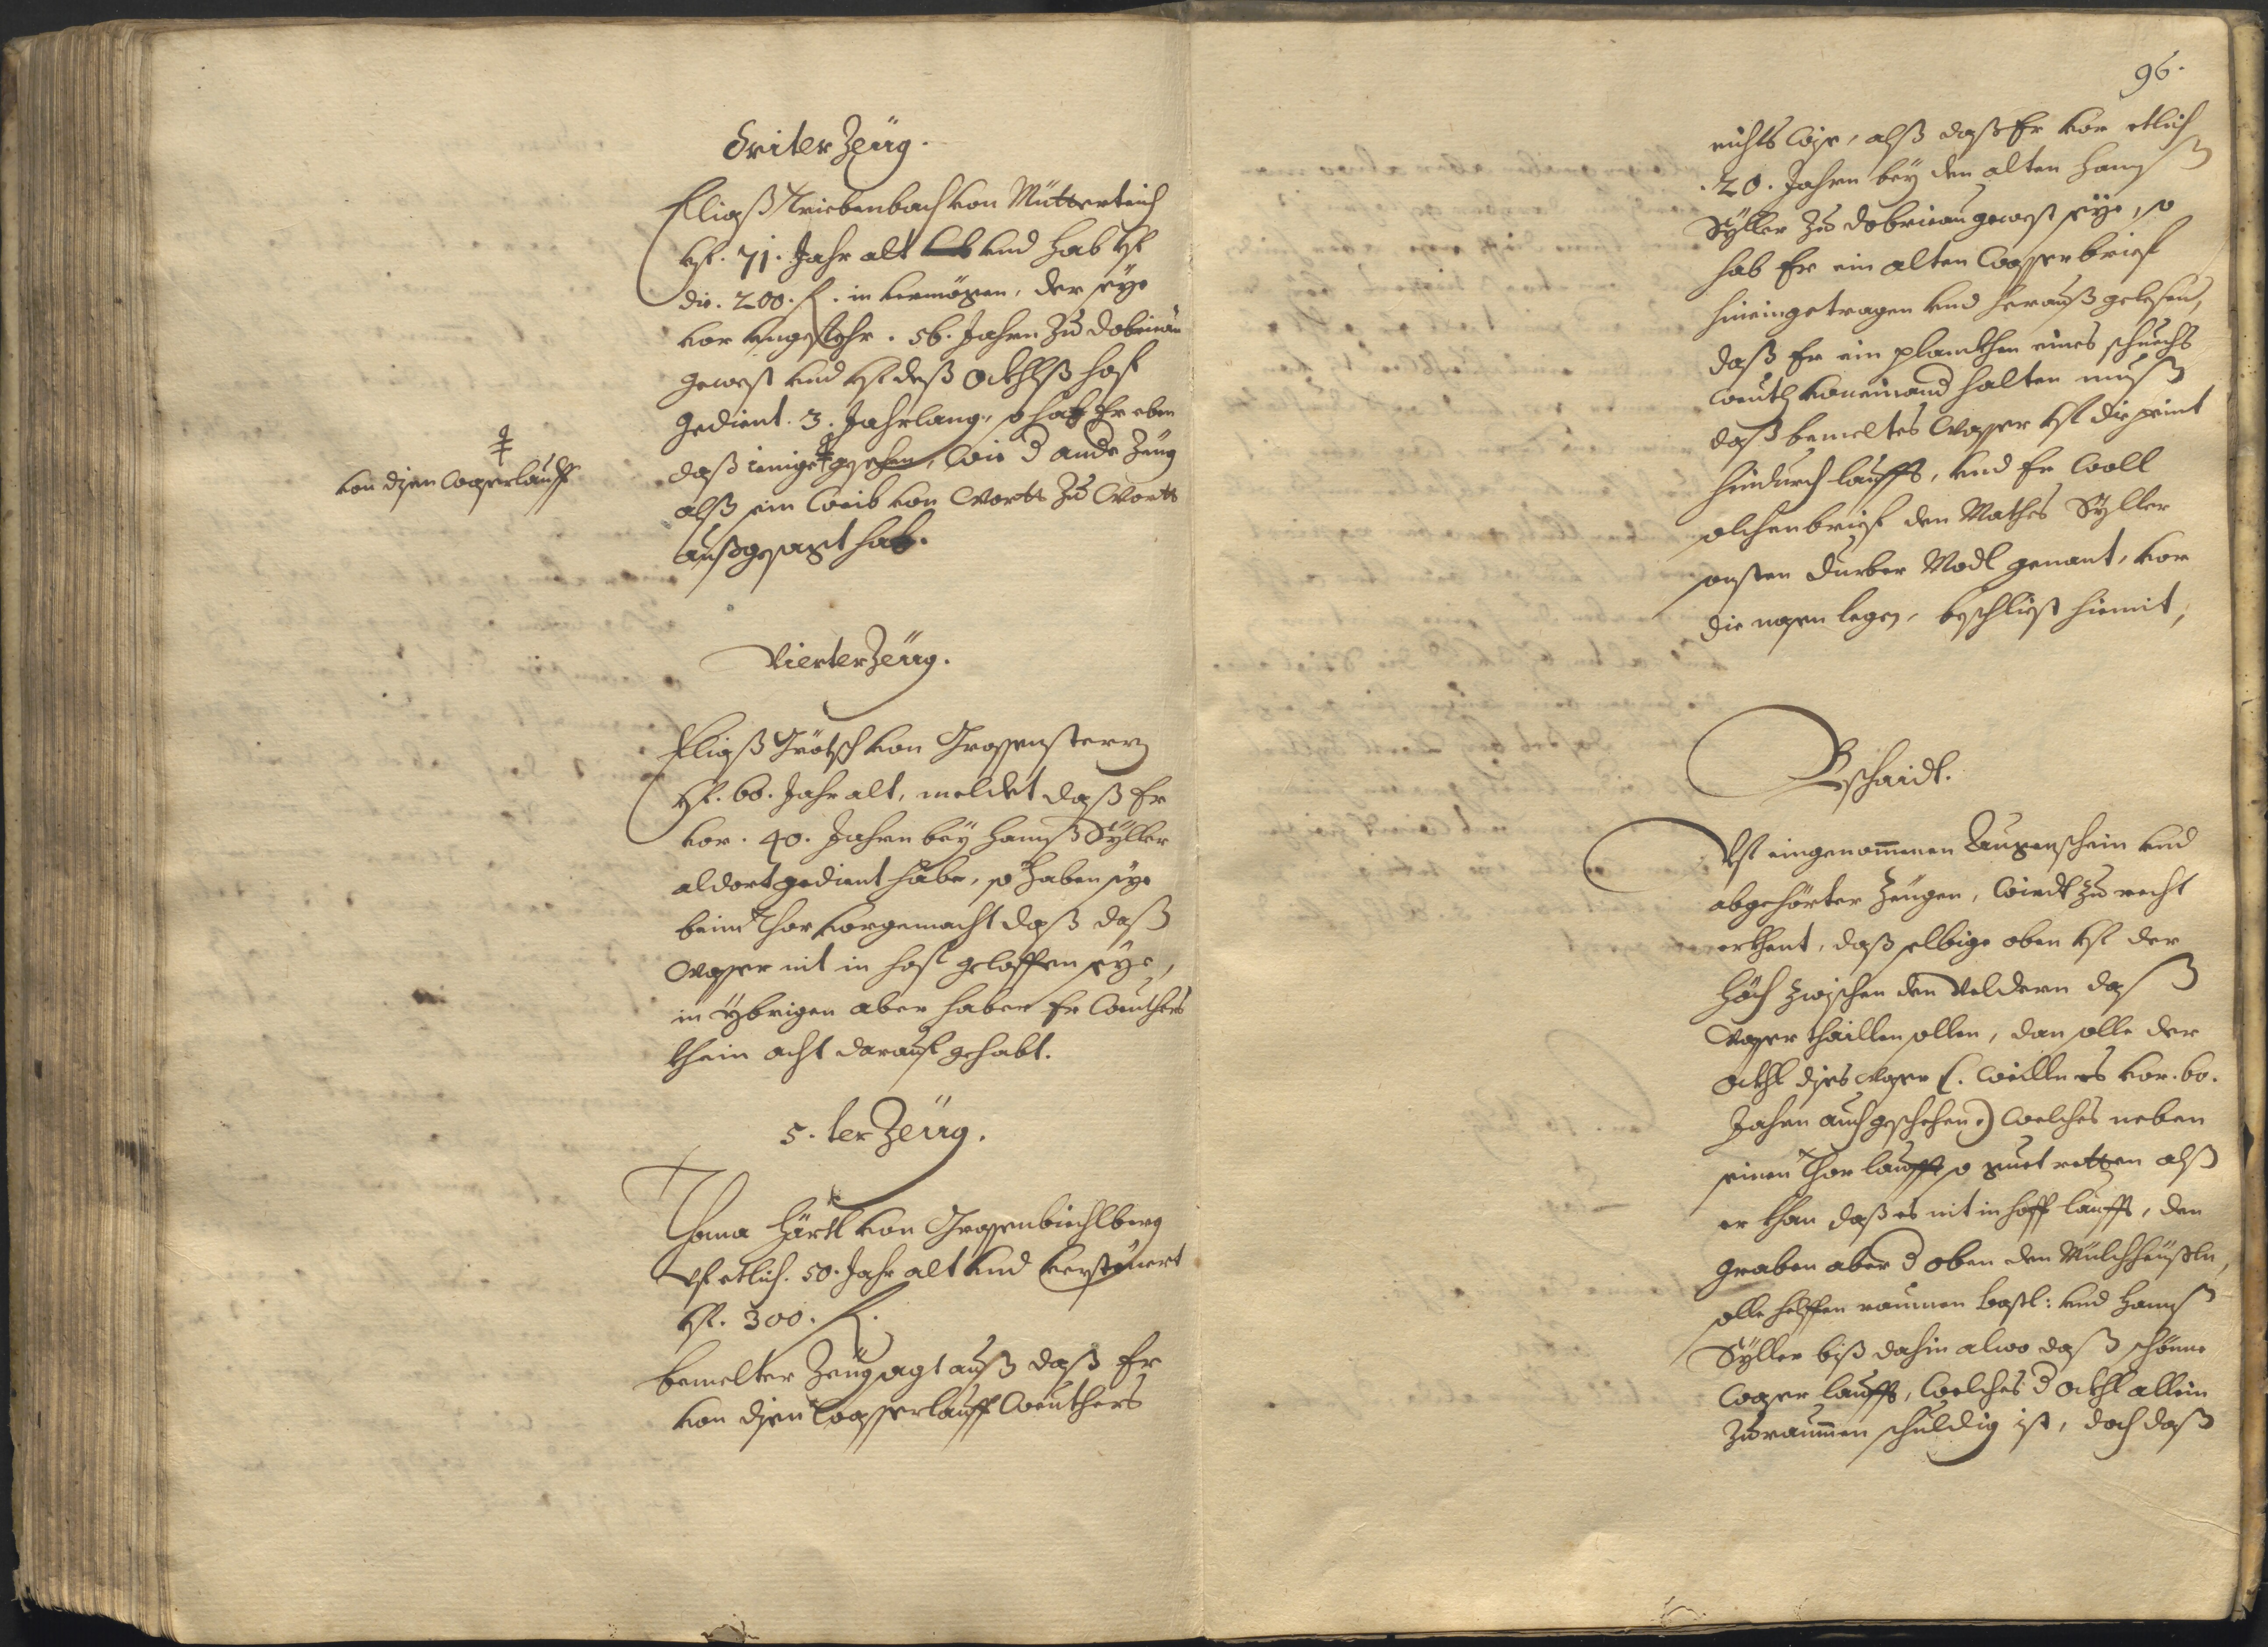 Driter Zeüg.
Eliaß Triebenbach von Mütterteich
vf. 71. Jahr alt vnd hab vf
die. 200. fl. in vermögen, der seye
vor vngefehr. 56. Jahrn zu Dobrigau
gewest vnd vf deß Öckhlß hof
gedient. 3. Jahrlang, so hab Er eben
daß ienige gesehen, wie d ander Zeüg
alß sein Weib von Wortt zu Wortt
außgesagt hab.
von disen Wasserlauff
Vierter Zeüg.
Eliaß Trötsch von Grossensterz
vf. 60. Jahr alt, meldet daß Er
vor. 40. Jahren bey Hannß Syller
aldort gedient habe, so haben sye
beim Thor vorgemacht daß daß
Wasser nit in hof geloffen seye,
in übrigen aber haber Er weithers
khein acht darauf gehabt.
5. ter Zeüg.
Thoma Härtl von Grossenbüchlberg
vf etlich. 50. Jahr alt vnd versteüert
vf. 300. fl.
bemelter Zeüg sagt auß daß Er
von disen Wasserlauff weithers
96.
nichts wise, alß daß Er vor etlich
. 20. Jahrn bey den alten Hannß
Syller zu Dobrigau gewest seye, so
hab Er ein alten Wasserbrief
hineingetragen vnd heraußgelesen,
daß Er ein planckhen eines schuechs
weith voneinand halten muß
daß bemeltes Wasser vf die peint
hindurch lauffe, vnd Er woll
solchen brief den Mathes Syller
sonsten Durber Modl genant, vor
die nasen legen, beschliest hiemit,
Bschaidt.
Vf eingenommenen Augenschein vnd
abgehörter Zeügen, wirdt zu recht
erkhent, daß selbige oben vf der
höch zwischen den Veldern daß
Wasser thaillen sollen, dan solle der
Öckhl dises Wasser (. weilln es vor. 60.
Jahrn auch geschehen .) welches neben
seinen Thor lauffe so guet retten alß
er khan daß es nit in hoff lauffe, den
graben aber d oben den Mülchheüßln,
solle helffen raumen Bastl: vnd Hannß
Syller biß dahin alwo daß schöne
Wasser lauffe, welches d Öckhl allein
zuraumen schuldig ist, doch daß